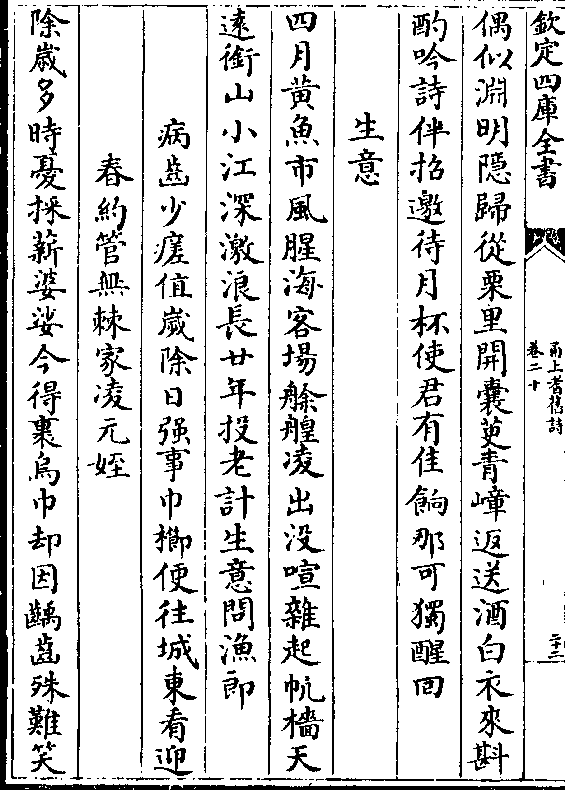 欽定四庫全書
甬上耆舊詩
卷二十
二十二
偶似淵明隱歸從栗里開囊萸青嶂返送酒白衣來斟
酌吟詩伴招邀待月杯使君有佳餉那可獨醒回
生意
四月黃魚市風腥海客場艅艎凌出没喧雜起帆檣天
遠銜山小江深激浪長廿年投老計生意問漁郎
病齒少瘥值嵗除日强事巾櫛便往城東看迎
春約管無棘家凌元姪
除嵗多時憂採薪婆娑今得裹烏巾却因齲齒殊難笑